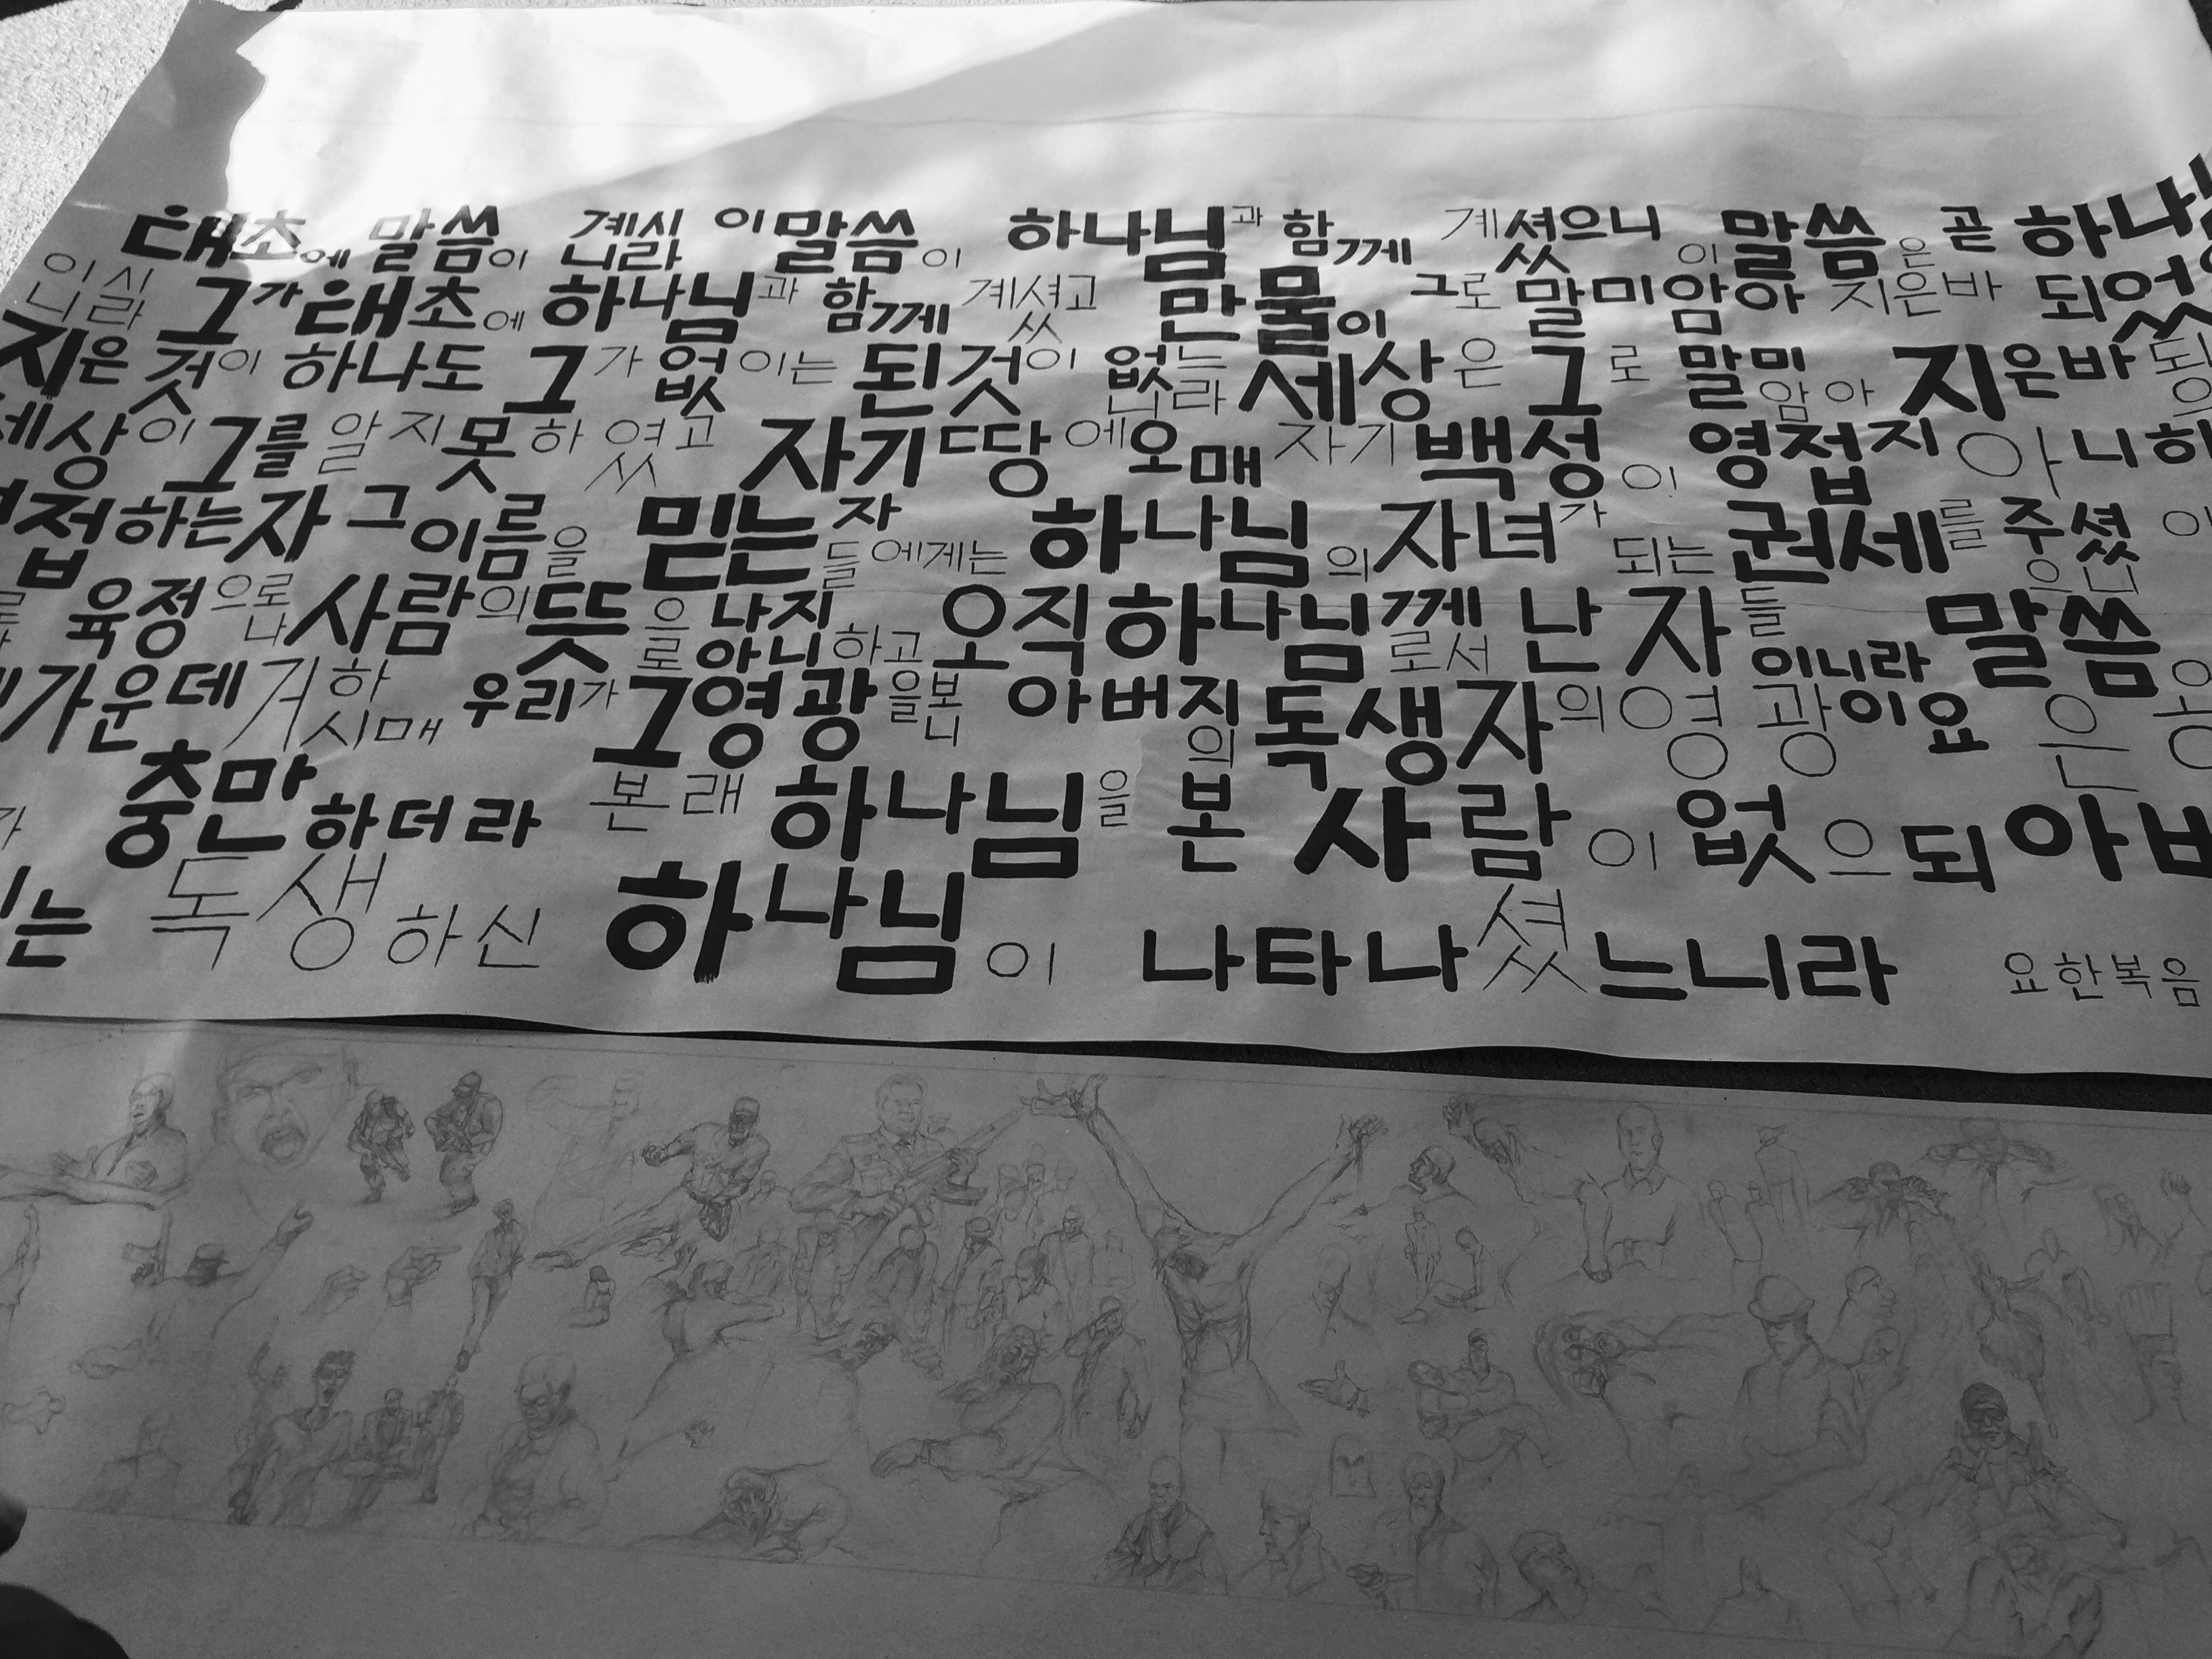 태초에 말씀이 계시니라 이 말씀이 하나님과 함께 계셨으니 이 말씀은 곧 하나님
이시니라 그가 태초에 하나님과 함께 계셨고 만물이 그로 말미암아 지은바 되었
지은 것이 하나도 그가 없이는 된것이 없느니라 세상은 그로 말미암아 지은바 되
세상이 그를 알지 못하였고 자기 땅에 오매 자기 백성이 영접지 아니하
접하는 자 그 이름을 믿는 자들에게는 하나님의 자녀가 되는 권세를 주셨으니 이
육정으로나 사람의 뜻으로 나지 아니하고 오직 하나님께로서 난 자들이니라 말씀
가운데 거하시매 우리가 그 영광을 보니 아버지의 독생자의 영광이요 은
충만하더라 본래 하나님을 본 사람이 없으되 아버
는 독생하신 하나님이 나타나셨느니라 요한복음